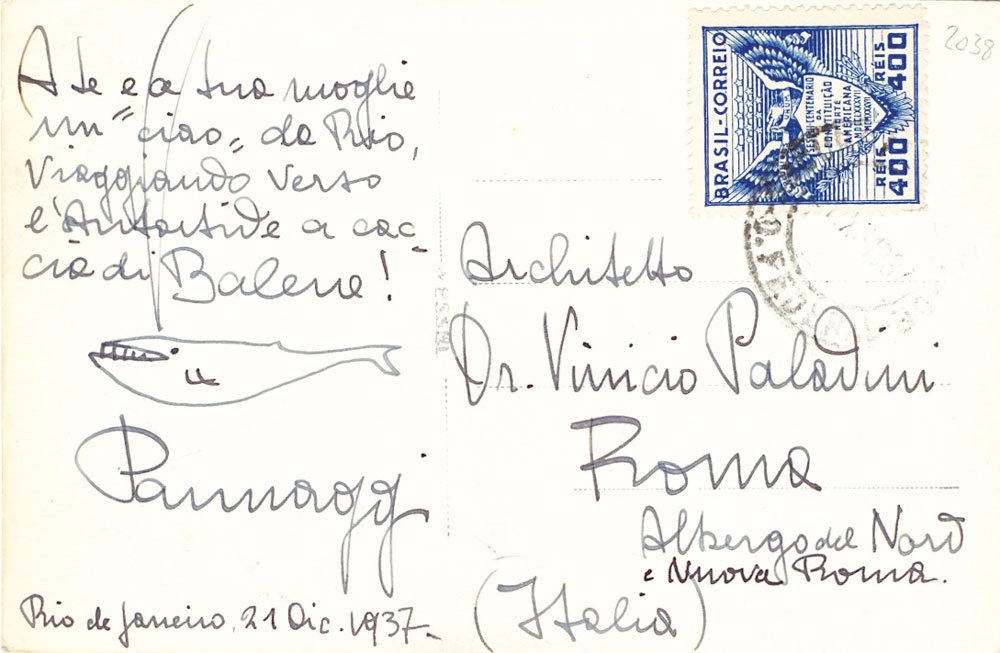 A te e a tua moglie
un "ciao" da Rio,
Viaggiando verso
l'Antartide a cac-
cia di Balene!
Pannaggi
Rio de Janeiro, 21 Dic. 1937-
2038
BRASIL-CORREIO
SESQUI-CENTENARIO
DA
CONSTITUIÇÃO
NORTE
AMERICANA
MDCCLXXXVII
MCMXXXVII
RÉIS 400
RÉIS 400
Architetto
Dr. Vinicio Paladini
Roma
Albergo del Nord
e Nuova Roma.
(Italia)